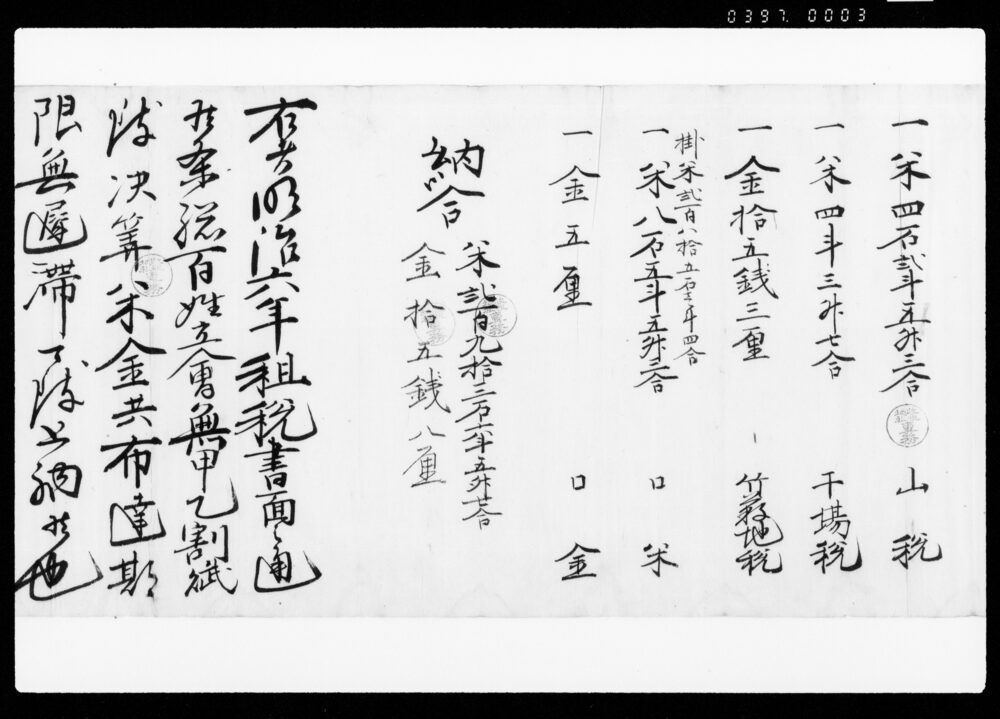 0397. 0003
一米四石弐斗五升三合 山税
一米四斗三升七合 干場税
一金拾五銭三厘 竹藪地税
掛米弐百八拾五石壱斗四合
一米八石五斗五升三合 口米
一金五厘 口金
納合 米弐百九拾三石六斗五升七合
金拾五銭八厘
右者明治六年租税書面之通
候条総百姓立会無甲乙割賦
致决算米金共布達期
限無遅滞可致上納者也